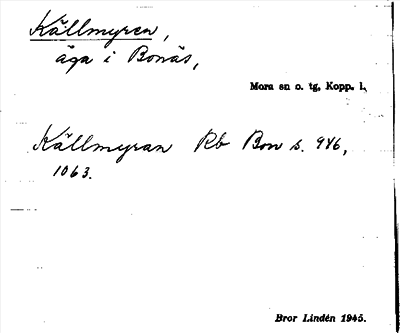 Källmyren,
äga i Bonäs,
Mora sn o. tg, Kopp. l.
Källmyran Rb Bon s. 946,
1063.
Bror Lindén 1945.